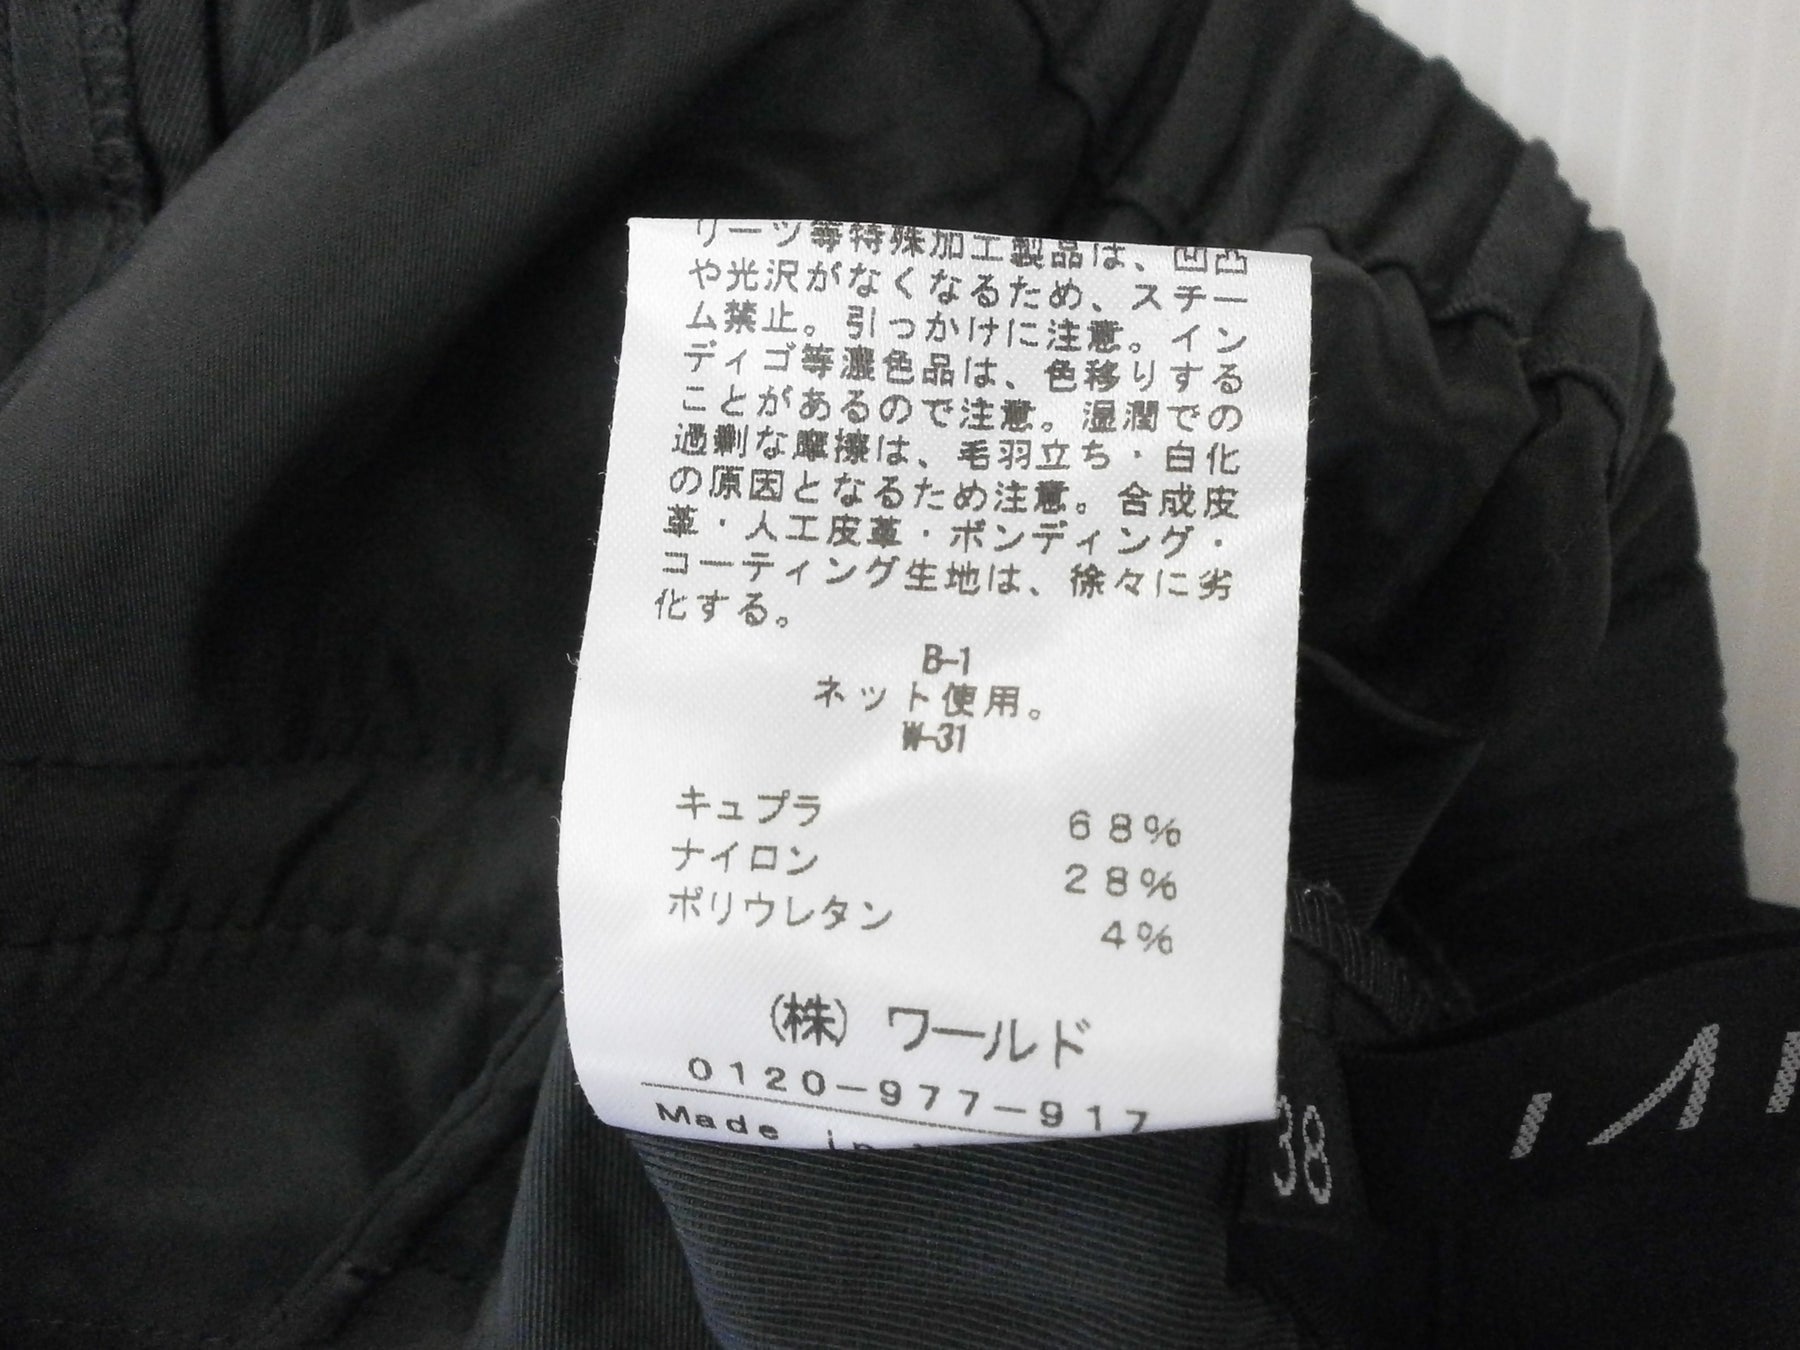 リーツ等特殊加工製品は、凹凸
や光沢がなくなるため、スチー
ム禁止。引っかけに注意。イン
ディゴ等濃色品は、色移りする
ことがあるので注意。湿潤での
過剰な摩擦は、毛羽立ち・白化
の原因となるため注意。合成皮
革・人工皮革・ボンディング・
コーティング生地は、徐々に劣
化する。
B-1
ネット使用。
W-31
キュプラ 68%
ナイロン 28%
ポリウレタン 4%
(株) ワールド
0120-977-917
Made in
38